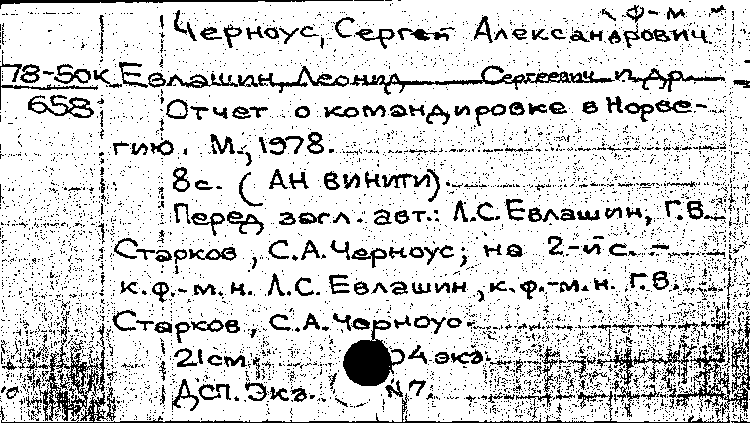 „ Ф-м "
Черноус, Сергей Александрович
78-50к Евлашин, Леонид Сергеевич и др.
658 Отчет о командировке в Норве-
гию. М., 1978.
8с. (АН ВИНИТИ).
Перед загл. авт.: Л.С. Евлашин, Г.В.
Старков, С.А. Черноус; на 2-й с. –
к.ф.-м.н. Л.С. Евлашин, к.ф.-м.н. Г.В.
Старков, С.А. Черноус.
21см. 4 экз.
ДСП. Экз. N7.